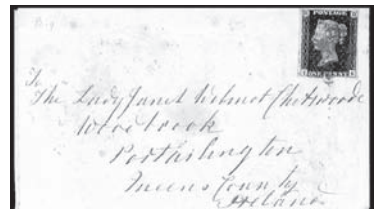 POSTAGE
ONE PENNY
To
The Lady Janet Wilmot Chetwoode
Woodbrook
Portarlington
Queens County
Ireland